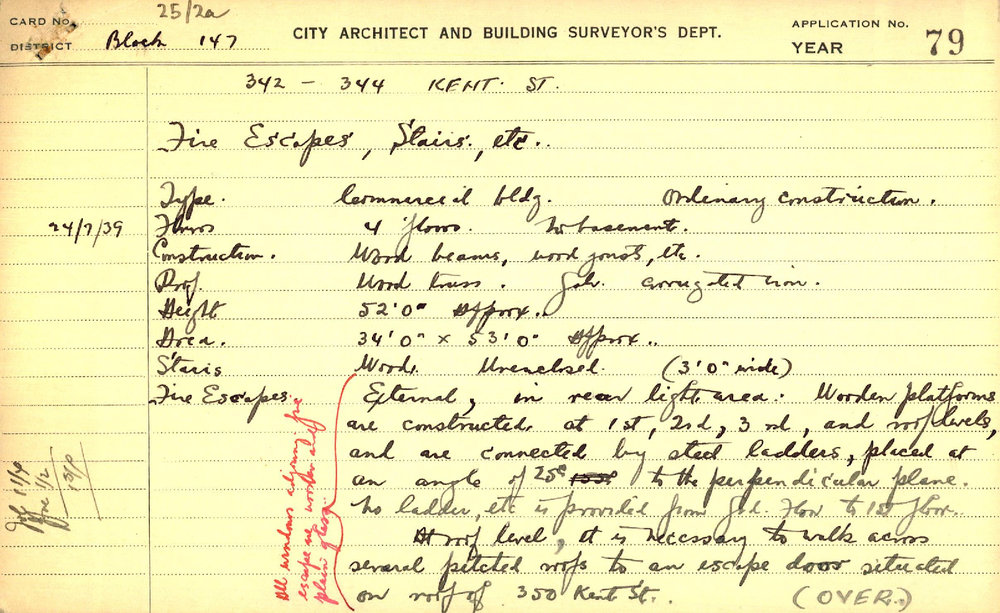 CARD No. 25/2a
DISTRICT Block 147
CITY ARCHITECT AND BUILDING SURVEYOR'S DEPT.
APPLICATION No.
YEAR 79
342 - 344 KENT. ST.
Fire Escapes, Stairs, etc..
Type. Commercial bldg. Ordinary construction.
24/7/39 Floors 4 floors. No basement.
Construction. Wood beams, wood joists, etc.
Roof. Wood truss. Galv. corrugated iron.
Height 52'0" Approx..
Area. 34'0" x 53'0" Approx..
Stairs Wood. Unenclosed. (3'0" wide)
Fire Escapes. External, in rear light area. Wooden platforms
are constructed at 1st, 2nd, 3rd, and roof levels,
and are connected by steel ladders, placed at
an angle of 25° to the perpendicular plane.
No ladder, etc is provided from Gnd Floor to 1st floor.
At roof level, it is necessary to walk across
several pitched roofs to an escape door situated
on roof of 350 Kent St.. (OVER.)
All windows adjoining
escape are wooden and of
plain glass.